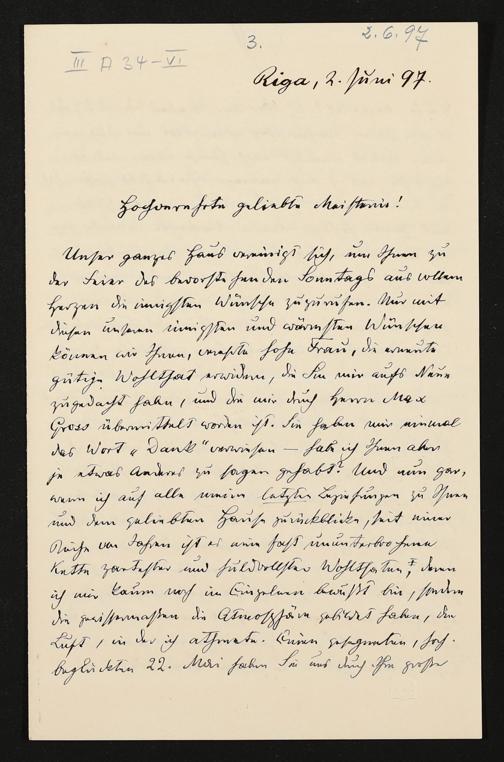 3.
2.6.97
III A 34-VI
Riga, 2. Juni 97.
Hochverehrte geliebte Meisterin!
Unser ganzes Haus vereinigt sich, um Ihnen zu
der Feier des bevorstehenden Sonntags aus vollem
Herzen die innigsten Wünsche zuzurufen. Nur mit
diesen unseren innigsten und wärmsten Wünschen
können wir Ihnen, verehrte hohe Frau, die erneute
gütige Wohlthat erwidern, die Sie mir aufs Neue
zugedacht haben, und die mir durch Herrn Max
Gross übermittelt worden ist. Sie haben mir einmal
das Wort „Dank" verwiesen — hab ich Ihnen aber
je etwas Anderes zu sagen gehabt? Und nun gar,
wenn ich auf alle meine letzten Beziehungen zu Ihnen
und dem geliebten Hause zurückblicke, seit einer
Reihe von Jahren ist es eine fast ununterbrochene
Kette zartester und huldvollster Wohlthaten, deren
ich mir kaum noch im Einzelnen bewußt bin, sondern
die gewissermaßen die Atmosphäre gebildet haben, die
Luft, in der ich athmete. Einen gesegneten, hoch-
beglückten 22. Mai haben Sie uns durch Ihre große